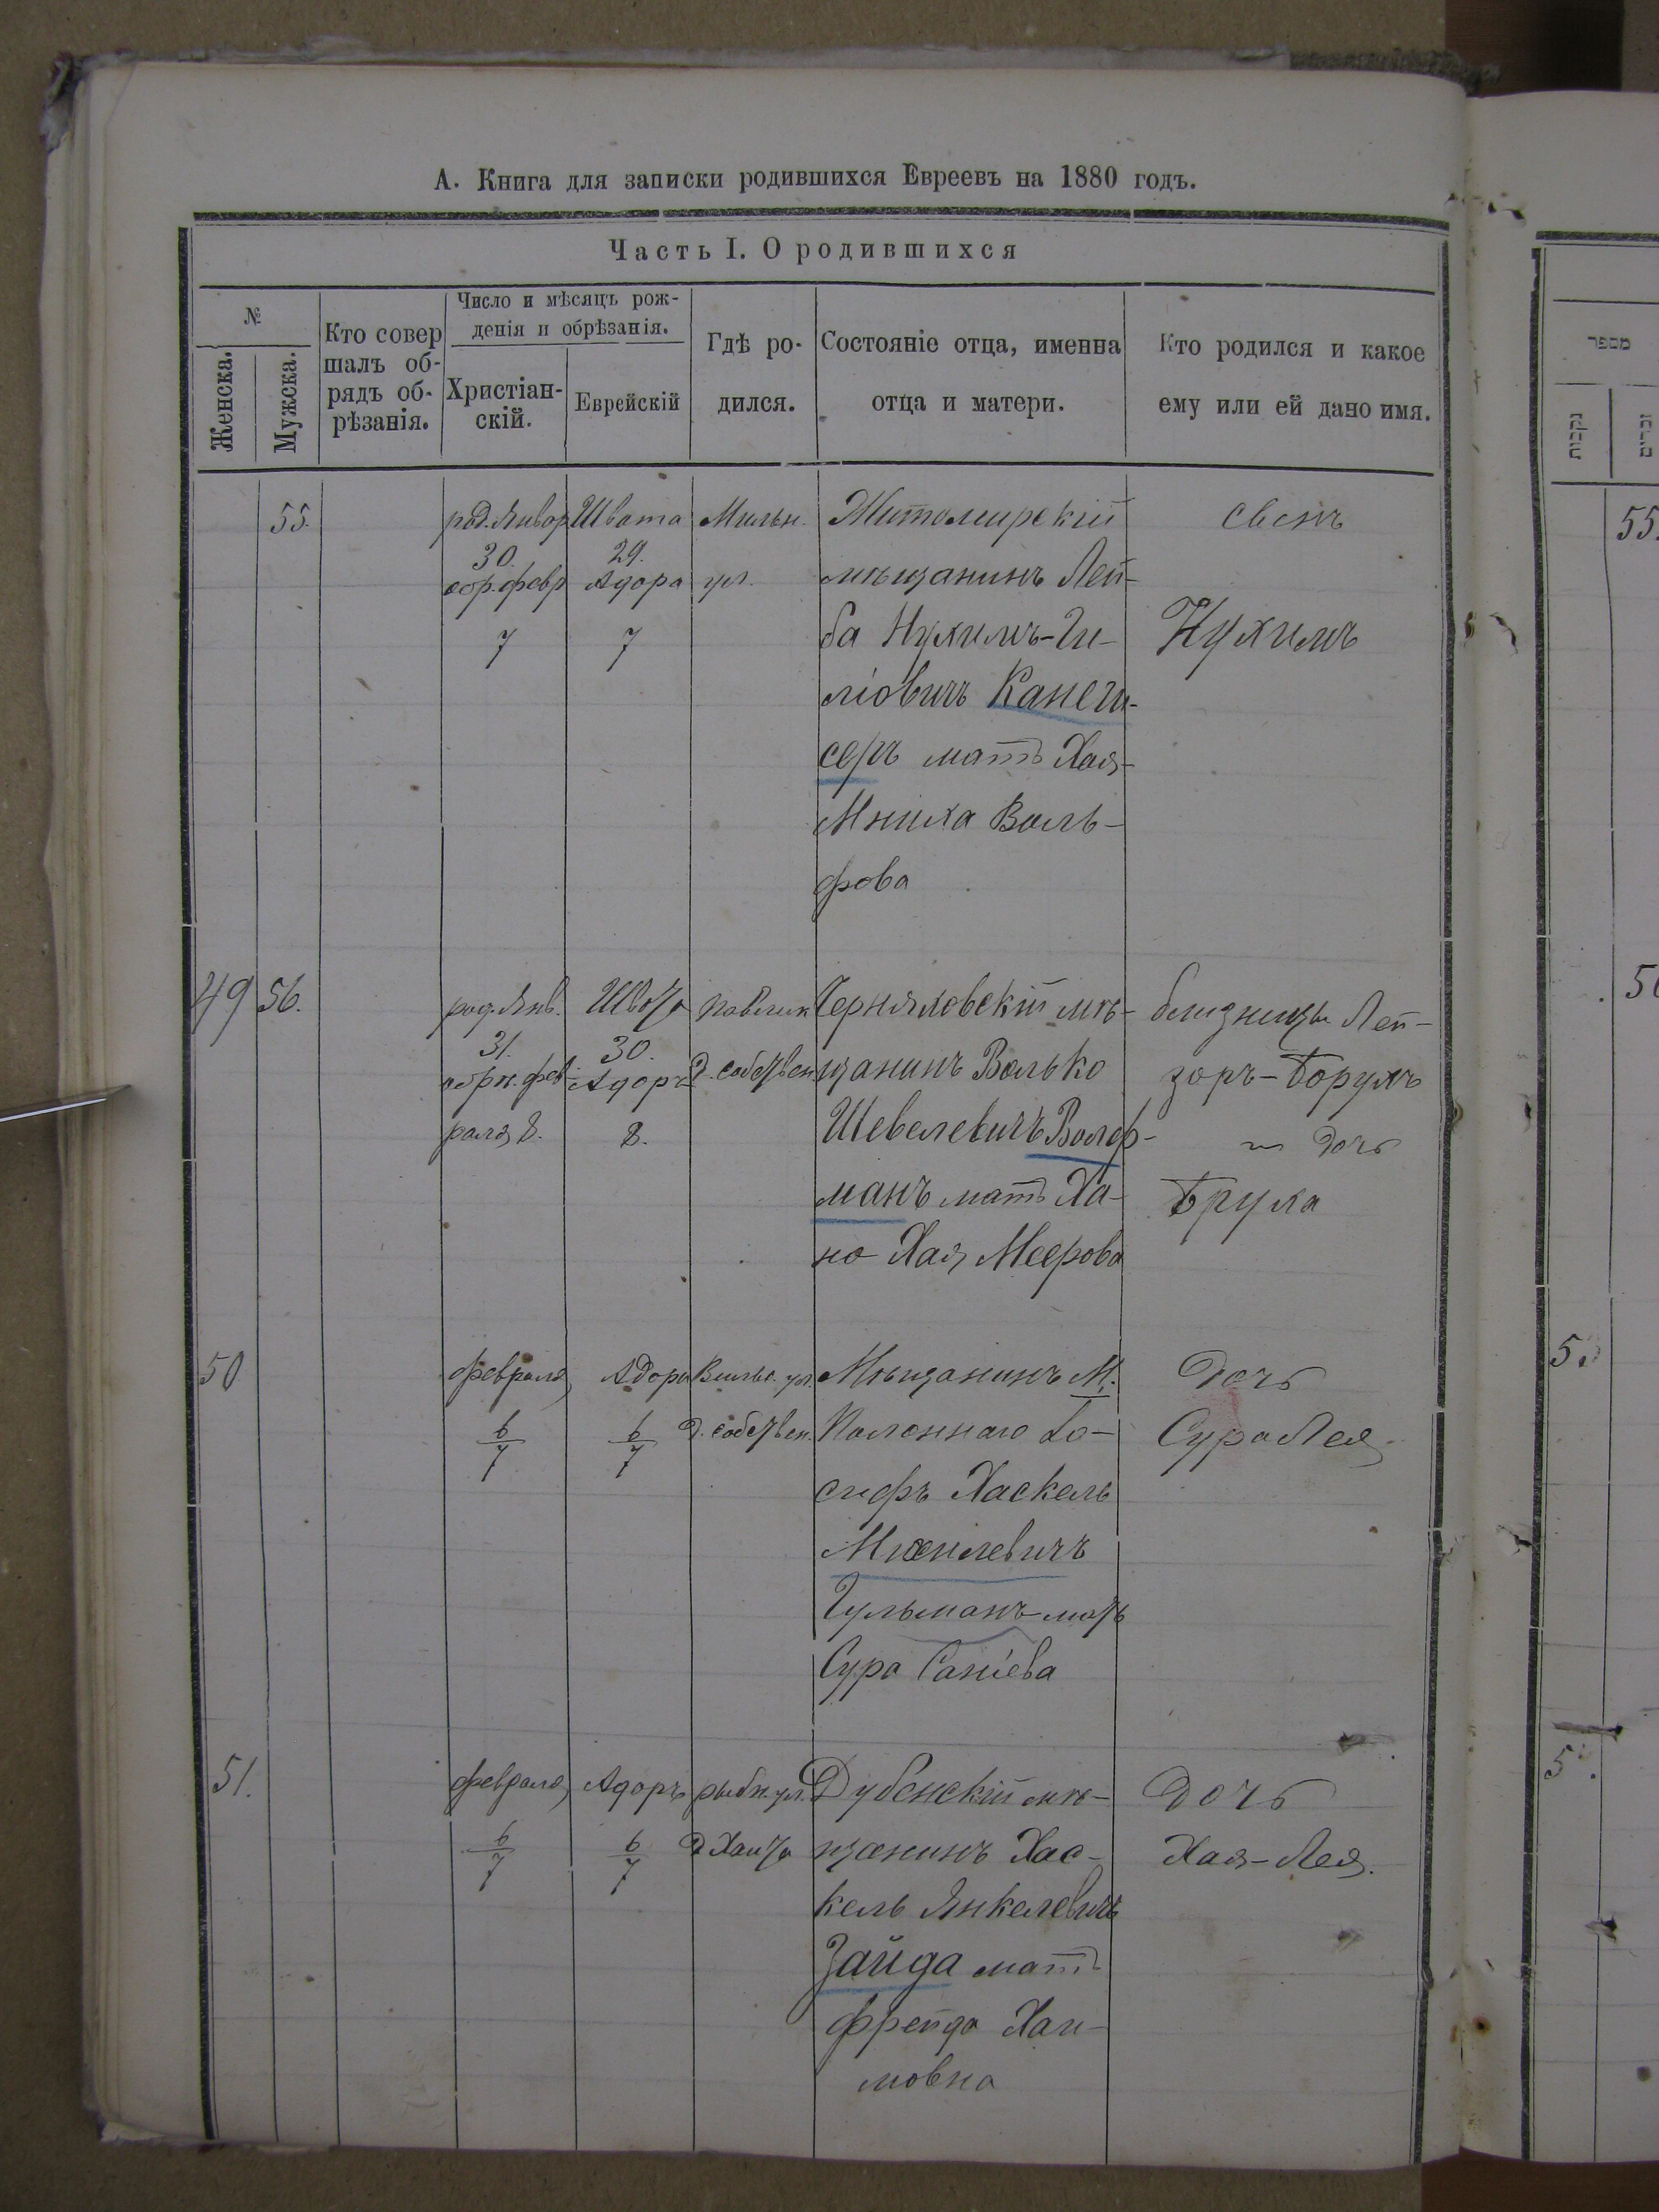 А. Книга для записки родившихся Евреевъ на 1880 годъ.
Часть I. О родившихся
№
Женска.
Мужска.
Кто совер
шалъ об-
рядъ об-
рѣзанія.
Число и мѣсяцъ рож-
денія и обрѣзанія.
Христіан-
скій.
Еврейскій
Гдѣ ро-
дился.
Состояніе отца, именна
отца и матери.
Кто родился и какое
ему или ей дано имя.
55.
род. Январ
30.
обр. февр
7
Швата
29.
Адора
7
Мильн.
ул.
Житомирскій
мѣщанинъ Лей-
ба Нухимъ-Ги-
ліовичъ Канеги-
серъ мать Хая-
Мниха Воль-
фова
сынъ
Нухимъ
49
56.
род. Янв.
31.
обрѣ. фев-
раля 8.
Швата
30.
Адоръ
8.
д. собствен.
Черняховскій мѣ-
щанинъ Волько
Шевелевичъ Волоф-
манъ мать Ха-
но Хая Меерова
близнецы Лей-
зоръ-Борухъ
и дочь
Бруха
50
февраля
6/7
Адора
6/7
Вильс. ул.
д. собствен.
Мѣщанинъ М.
Полоннаго Іо-
сифъ Хаскель
Михелевичъ
Гульманъ мать
Сура Саніева
дочь
Сура Лея
51.
февраля
6/7
Адоръ
6/7
рыбн. ул.
д Хаита
Дубенскій мѣ-
щанинъ Хас-
кель Янкелевичъ
Зайда мать
Фрейда Хаи-
мовна
дочь
Хая-Лея.
מספר
נקבות
זכרים
55.
5
5